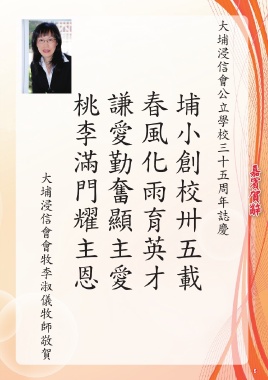 嘉賓賀辭
大埔浸信會公立學校三十五周年誌慶
埔小創校卅五載
春風化雨育英才
謙愛勤奮顯主愛
桃李滿門耀主恩
大埔浸信會會牧李淑儀牧師敬賀